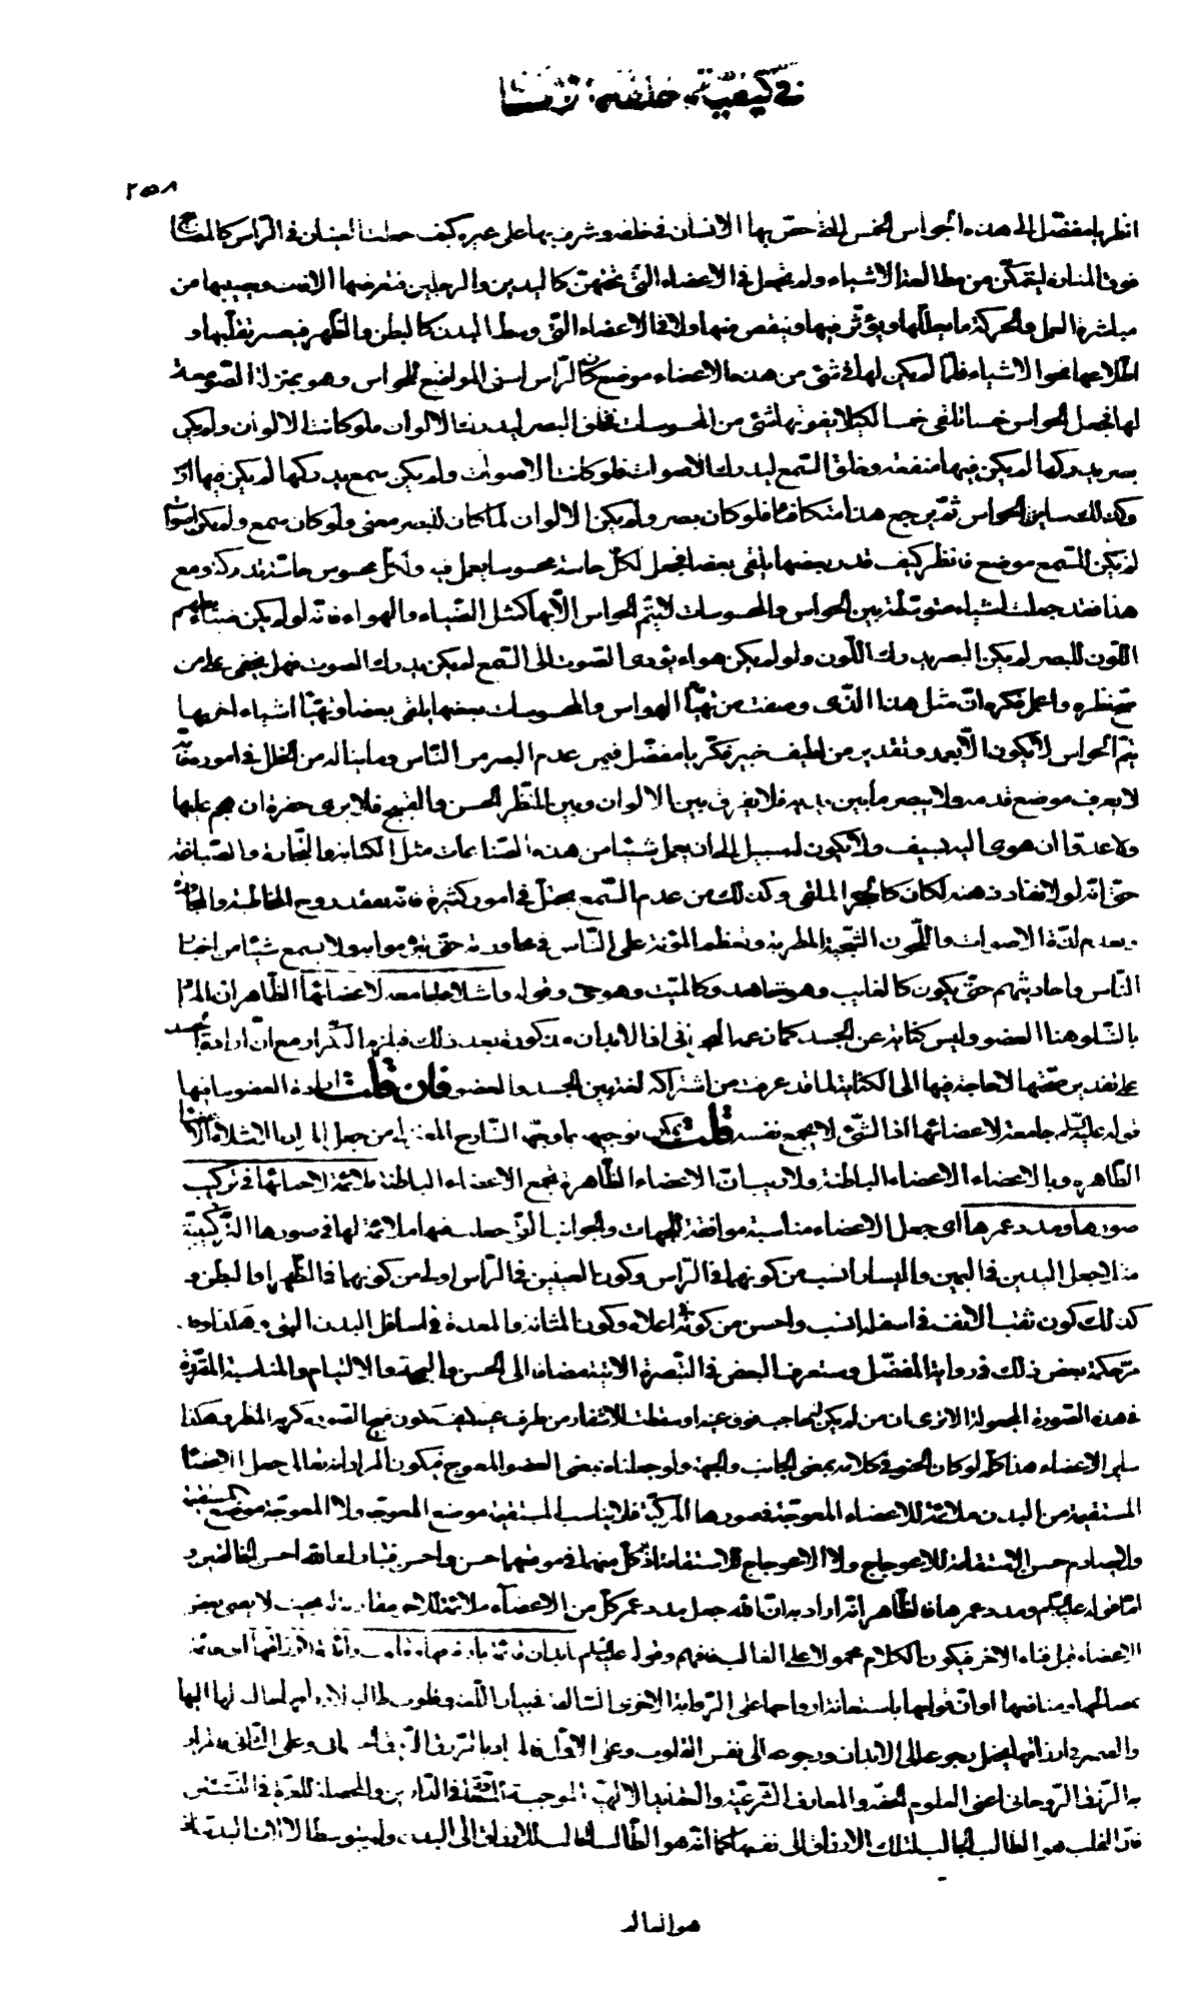 في كيفية خلقة الإنسان
٢٥٨
انظر يا مفضّل الى هذه الحواس الخمس التي خصّ بها الانسان في خلقه وشرف بها على غيره كيف جعلت العينان في الرّاس كالمصابيح
فوق المنارة ليتمكّن من مطالعة الاشياء ولم تجعل في الاعضاء التي تحتهنّ كاليدين والرجلين فتعرضها الافات ويصيبها من
مباشرة العمل والحركة ما يعلّلها ويؤثّر فيها وينقص منها ولا في الاعضاء التي وسط البدن كالبطن والظّهر فيعسر تقلّبها و
اطّلاعها نحوا الاشياء فلمّا لم يكن لها في شئ من هذه الاعضاء موضع كان الرّاس اسنى المواضع للحواس وهو بمنزلة الصّومعة
لها فجعل الحواس خمسا تلقى خمسا لكيلا يفوتها شئ من المحسوسات فخلق البصر ليدرك الالوان فلو كانت الالوان ولم يكن
بصر يدركها لم يكن فيها منفعة وخلق السّمع ليدرك الاصوات فلو كانت الاصوات ولم يكن سمع يدركها لم يكن فيها ارب
وكذلك ساير الحواس ثمّ يرجع هذا متكافئا فلو كان بصر ولم يكن الالوان لما كان للبصر معنى ولو كان سمع ولم يكن اصوات
لم يكن للسّمع موضع فانظر كيف قدر بعضها يلقى بعضا فجعل لكلّ حاسة محسوسا يعمل فيه ولكلّ محسوس حاسّة تدركه ومع
هذا فقد جعلت اشياء متوسّطة بين الحواس والمحسوسات لا يتمّ الحواس الّا بها كمثل الضّياء والهواء فانّه لو لم يكن ضياء يظهر
اللّون للبصر لم يكن البصر يدرك اللّون ولو لم يكن هواء يؤدى الصّوت الى السّمع لم يكن يدرك الصوت فهل يخفى على من
صحّ نظره واعمل فكره انّ مثل هذا الذّى وصفت من تهيّأ الحواس والمحسوسات بعضها يلقى بعضا وتهيّا اشياء اخر بها
يتمّ الحواس لا يكون الّا بعمد وتقدير من لطيف خبير فكّر يا مفضّل فيمن عدم البصر من النّاس وما يناله من الخلل في اموره فانّه
لا يعرف موضع قدمه ولا يبصر ما بين يديه فلا يفرق بين الالوان وبين المنظر الحسن والقبيح فلا يرى حفرة ان هجم عليها
ولا عدوّا ان هوى اليه بسيف ولا يكون له سبيل الى ان يعمل شيئا من هذه الصّناعات مثل الكتابة والتّجارة والصّياغة
حتّى انّه لولا نفاذ ذهنه لكان كالحجر الملقى وكذلك من عدم السّمع يختلّ في امور كثيرة فانّه يفقد روح المخاطبة والمحاورة
ويعدم لذّة الاصوات واللّحون الشّجيّة المطربة وتعظم المؤنة على النّاس في محاورته حتّى يتبرّموا به ولا يسمع شيئا من اخبار
النّاس واحاديثهم حتّى يكون كالغايب وهو شاهد وكالميّت وهو حى وقوله واشلاء جامعة لاعضائها الظّاهر ان المراد
بالشّلو هنا العضو وليس كناية عن الجسد
على تقدير صحّتها لا حاجة فيها الى الكناية لما قد عرفت من اشتراكه لغة بين الجسد والعضو فان قلت ارادة العضو ينافيها
قوله عليه السّلام جامعة لاعضائها اذ الشّئ لا يجمع نفسه قلت يمكن توجيهه بما وجّهه الشّارح المعتزلى من جعل المراد بالاشلاء الاعضاء
الظّاهرة وبالاعضاء الاعضاء الباطنة ولا ريب انّ الاعضاء الظّاهرة تجمع الاعضاء الباطنة ملائمة لاحنائها في تركيب
صورها ومدد عمرها اى جعل الاعضاء مناسبة موافقة للجهات والجوانب التي جعلت فيها ملائمة لها في صورها التّركيبيّة
مثلا جعل اليدين في اليمين واليسار انسب من كونهما في الرّاس وكون العينين في الرّاس اولى من كونهما في الظّهر او البطن و
كذلك كون ثقب الانف في اسفله انسب واحسن من كونه في اعلاه وكون المثانة والمعدة في اسافل البدن
حكمة بعض ذلك في رواية المفضّل وستعرف البعض في التّبصرة الاتية مضافا الى الحسن والبهجة والالتيام والمناسبة المقرّرة
في هذه الصّورة المجعولة الا ترى ان من لم يكن له حاجب فوق عينه او سقطت الاشفار من طرف عينه كيف يكون قبيح الصّورة كريه المنظر وهكذا
ساير الاعضاء هذا كلّه لو كان الحنو في كلامه بمعنى الجانب والجهة ولو جعلناه بمعنى العضو المعوج فيكون المراد انه تعالى جعل الاعضاء
المستقيمة من البدن ملائمة للاعضاء المعوجّة في صورها المركّبة فلا يناسب المستقيمة موضع المعوجّة ولا المعوجّة موضع المستقيمة
ولا يصادم حسن الاستقامة للاعوجاج ولا الاعوجاج للاستقامة اذ كلّ منهما في موقعهما حسن واحسن فتبارك الله احسن الخالقين و
امّا قوله عليه السلام ومدد عمرها فالظّاهر انّه اراد به انّ الله جعل مدد عمر كلّ من الاعضاء ملائمة للاخر بحيث لا يصير بعض
الاعضاء قبل فناء الاخر فيكون الكلام محمولا على الغالب فافهم وقوله عليه السّلام بابدان قائمة بارفاقها وقلوب رائدة لارزاقها اى
مصالحها ومنافعها او انّ قوامها باستعانة ارواحها على الرّواية الاخرى السّالفة في بيان اللّغة وقلوب طالبة لارزاقها جالبة لها اليها
والضمير في ارزاقها يحتمل رجوعه الى الابدان ورجوعه الى نفس القلوب وعلى الاوّل فالمراد بالرّزق الرّزق الجسمانى وعلى الثّانى فالمراد
به الرّزق الرّوحانى اعنى العلوم الحقّة والمعارف الشّرعيّة والعقايد الالهيّة الموجبة للسّعادة في الدّارين والمحصلة للعزّة في النّشئتين
فانّ القلب هو الطّالب الجالب لتلك الارزاق الى نفسها كما انّه هو الطّالب الجالب للارزاق الى البدن ولو بتوسّط الالات البدنيّة
هو انما لم